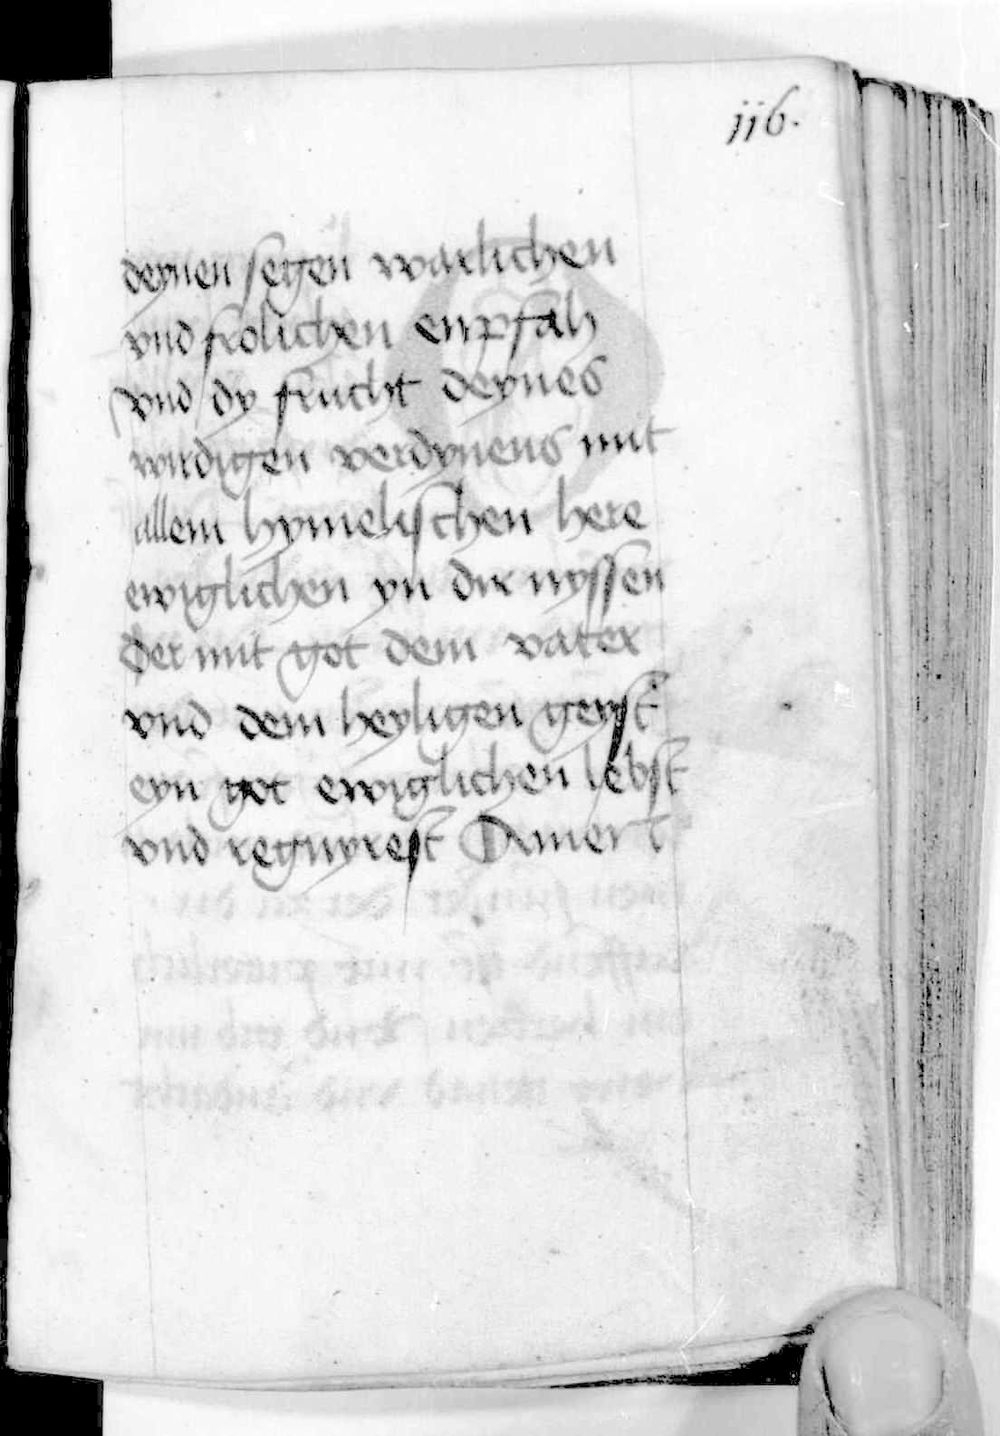 116.
deynen segen warlichen
vnd frolichen enpfah
vnd dy frucht deynes
wirdigen verdynens mit
allem hymelischen here
ewiglichen yn dir nyssen
der mit got dem vater
vnd dem heyligen geyst
eyn got ewiglichen lebst
vnd regnyrest Amen